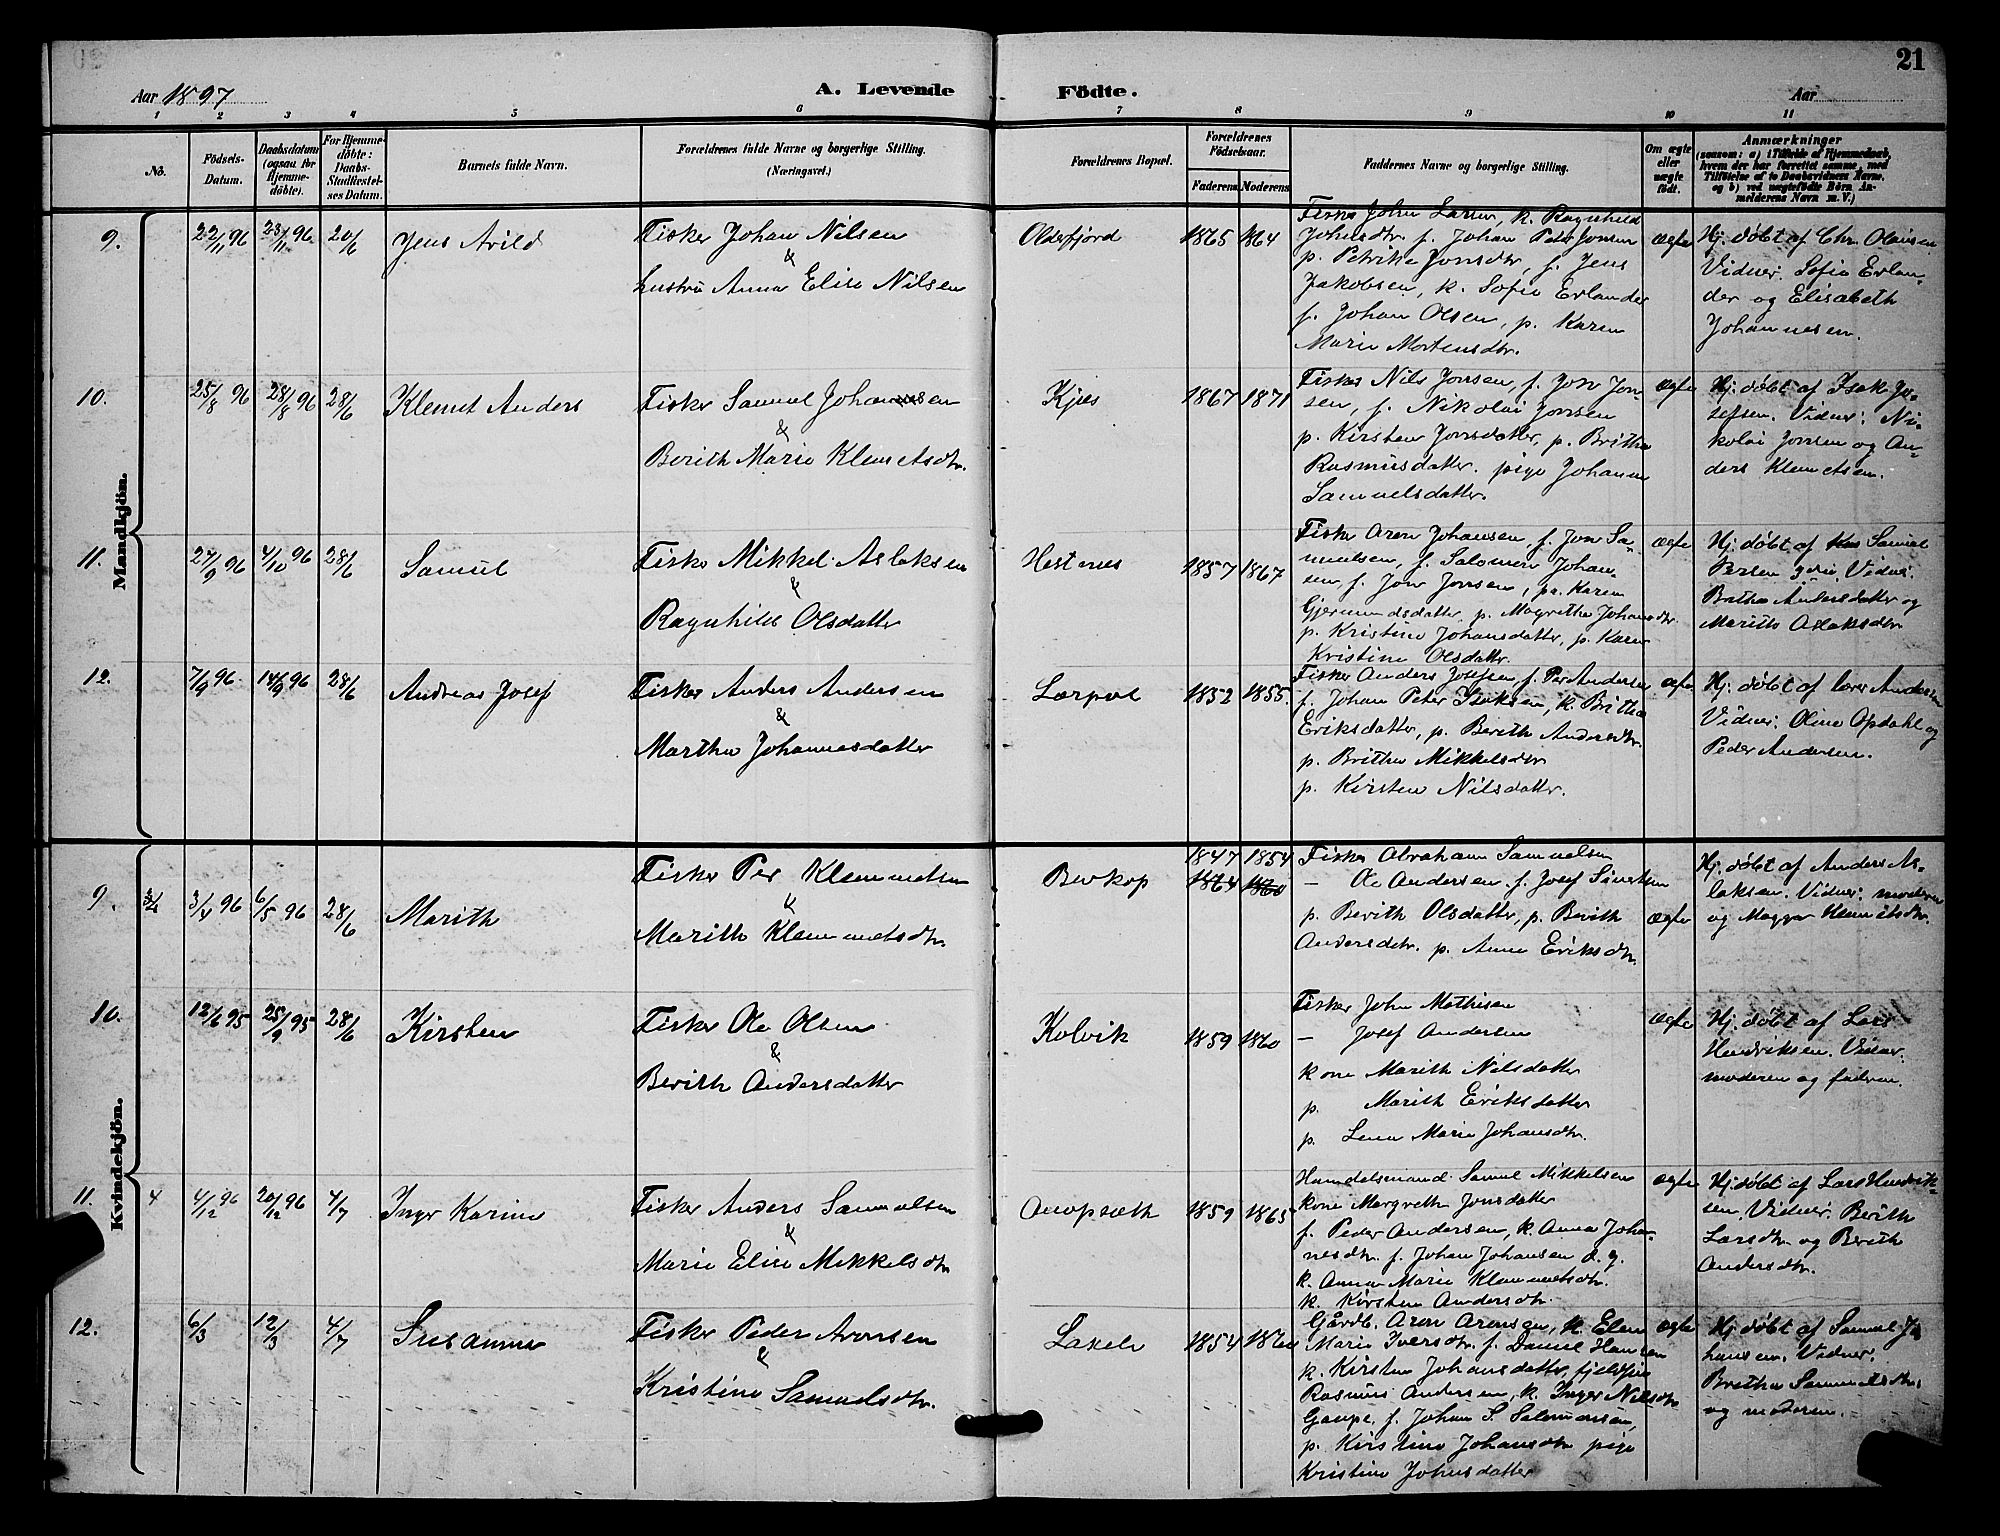 21
Aar 1897
A. Levende Födte.
Aar
1 2 3 4 5 6 7 8 9 10 11
No.
Födsels-Datum.
Daabsdatum (ogsaa for Hjemme-döbte).
For Hjemme-döbte: Daabs-Stadfæstelses Datum.
Barnets fulde Navn.
Forældrenes fulde Navne og borgerlige Stilling. (Næringsvei.)
Forældrenes Bopæl.
Forældrenes Födselsaar.
Faderens Moderens
Faddernes Navne og borgerlige Stilling.
Om ægte eller uægte födt.
Anmærkninger
(saasom: a) i Tilfælde af Hjemmedaab, hvem der har forrettet samme, med Tilföielse af to Daabsvidners Navne, og b) ved uægtefödte Börn Anmelderens Navn m. V.)
Mandkjön.
9. 22/11 96 23/11 96 20/6 Jens Arild
Fisker Johan Nilsen
&
hustru Anna Elise Nilsen
Olderfjord 1865 1864
Fisker John Larsen, k. Ragnhild
Johnsdtr. f. Johan Peter Jonsen
p. Petrike Jonsdtr, f. Jens
Jakobsen, k. Sofie Erlander
f. Johan Olsen, p. Karen
Marie Mortensdtr.
ægte
Hj. døbt af Chr. Olaisen
Vidner: Sofie Erlan-
der og Elisabeth
Johannesen.
10. 25/8 96 28/8 96 28/6 Klemet Anders
Fisker Samuel Johannesen
&
Berith Marie Klemetsdtr.
Kjæs 1867 1871
Fisker Nils Jonsen, f. Jon Jon-
sen, f. Nikolai Jonsen
p. Kirsten Jonsdatter, p. Britha
Rasmusdatter. pige Johanna
Samuelsdatter.
ægte
Hj. døbt af Isak Jo-
sefsen. Vidner: Ni-
kolai Jonsen og An-
ders Klemetsen.
11. 27/9 96 4/10 96 28/6 Samuel
Fisker Mikkel Aslaksen
&
Ragnhild Olsdatter
Hestenes 1857 1867
Fisker Aron Johansen, f. Jon Sa-
muelsen, f. Salomon Johan-
sen, f. Jon Jonsen, p. Karen
Gjermundsdatter, p. Magretha Johansdtr.
p. Kristine Johansdatter, p. Karen
Kristine Olsdatter.
ægte
Hj. døbt af Samuel
Persen Vidner:
Britha Andersdatter og
Marith Aslaksdtr
12. 7/9 96 14/9 96 28/6 Andreas Josef
Fisker Anders Andersen
&
Martha Johannesdatter
Lærpol 1852 1855.
Fisker Anders Josefsen, f. Per Andersen
f. Johan Peter Isaksen, k. Britha
Eriksdatter, p. Berith Andersdtr.
p. Britha Mikkelsdtr
p. Kirsten Nilsdatter.
ægte
Hj. døbt af lærer Andersen
Vidner: Oline Opdahl og
Peder Andersen.
Kvindekjön.
9. 3/4 3/4 96 6/5 96 28/6 Marith
Fisker Per Klemmetsen
&
Marith Klemmetsdtr.
Bevkop 1847 1854
1864 1860
Fisker Abraham Samuelsen
— Ole Andersen. f. Josef Sivertsen
p. Berith Olsdatter, p. Berith
Andersdtr. p. Anne Eriksdtr.
ægte
Hj. døbt af Anders As-
laksen. Vidner: moderen
og Magga Klemetsdtr.
10. 12/6 95 25/9 95 28/6 Kirsten
Fisker Ole Olsen
&
Berith Andersdatter
Kolvik 1859 1860
Fisker John Mathisen
— Josef Andersen
kone Marith Nilsdatter
p. Marith Eriksdatter
p. Lena Marie Johansdtr.
ægte
Hj. døbt af Lars
Hendriksen. Vidner:
moderen og faderen.
11. 4 4/12 96 20/12 96 4/7 Inger Karine
Fisker Anders Samuelsen
&
Marie Elise Mikkelsdtr
1859 1865
Handelsmand Samuel Mikkelsen
kone Margreth Jonsdatter
f. Peder Andersen, k. Anna Joha-
nesdtr. f. Johan Johansen d. y.
k. Anna Marie Klemmetsdtr.
k. Kirsten Andersdtr.
ægte
Hj. døbt af Lars Hendrik-
sen. Vidner: Berith
Larsdtr. og Berith
Andersdtr.
12. 6/3 12/3 4/7 Susanna
Fisker Peder Aronsen
&
Kristine Samuelsdtr.
Lakelv 1854 1860
Gårdb. Aron Aronsen, k. Elen
Marie Iversdtr. f. Daniel Hansen
k. Kirsten Johansdatter, fjeldfin
Rasmus Andersen, k. Inger Nilsdtr
Gaupe, f. Johan S. Salomonsen,
p. Kirstine Johansdtr pige
Kristine Johnsdatter
ægte
Hj. døbt af Samuel Jo-
hansen. Vidner:
Britha Samuelsdtr.
og moderen.